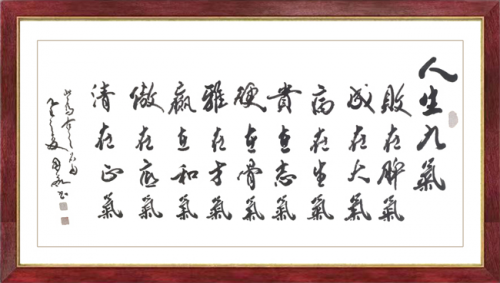 人生九氣
敗在脾氣
成在大氣
病在生氣
貴在志氣
硬在骨氣
雅在才氣
贏在和氣
傲在底氣
清在正氣